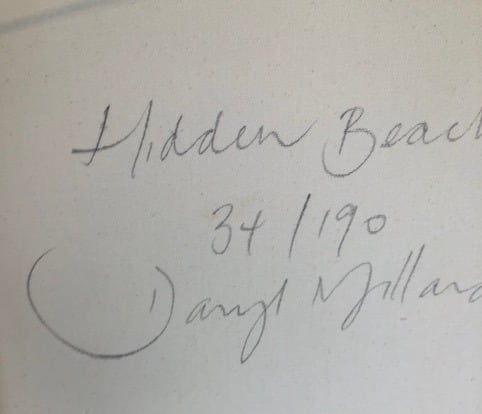 Hidden Beach
34/190
Daryl Millard